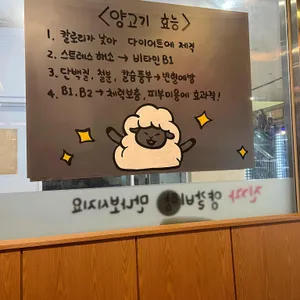 <양고기 효능>
1. 칼로리가 낮아 다이어트에 제격
2. 스트레스 해소 → 비타민 B1
3. 단백질, 철분, 칼슘풍부 → 빈혈예방
4. B1, B2 → 체력보충, 피부미용에 효과적!
만나보시지요